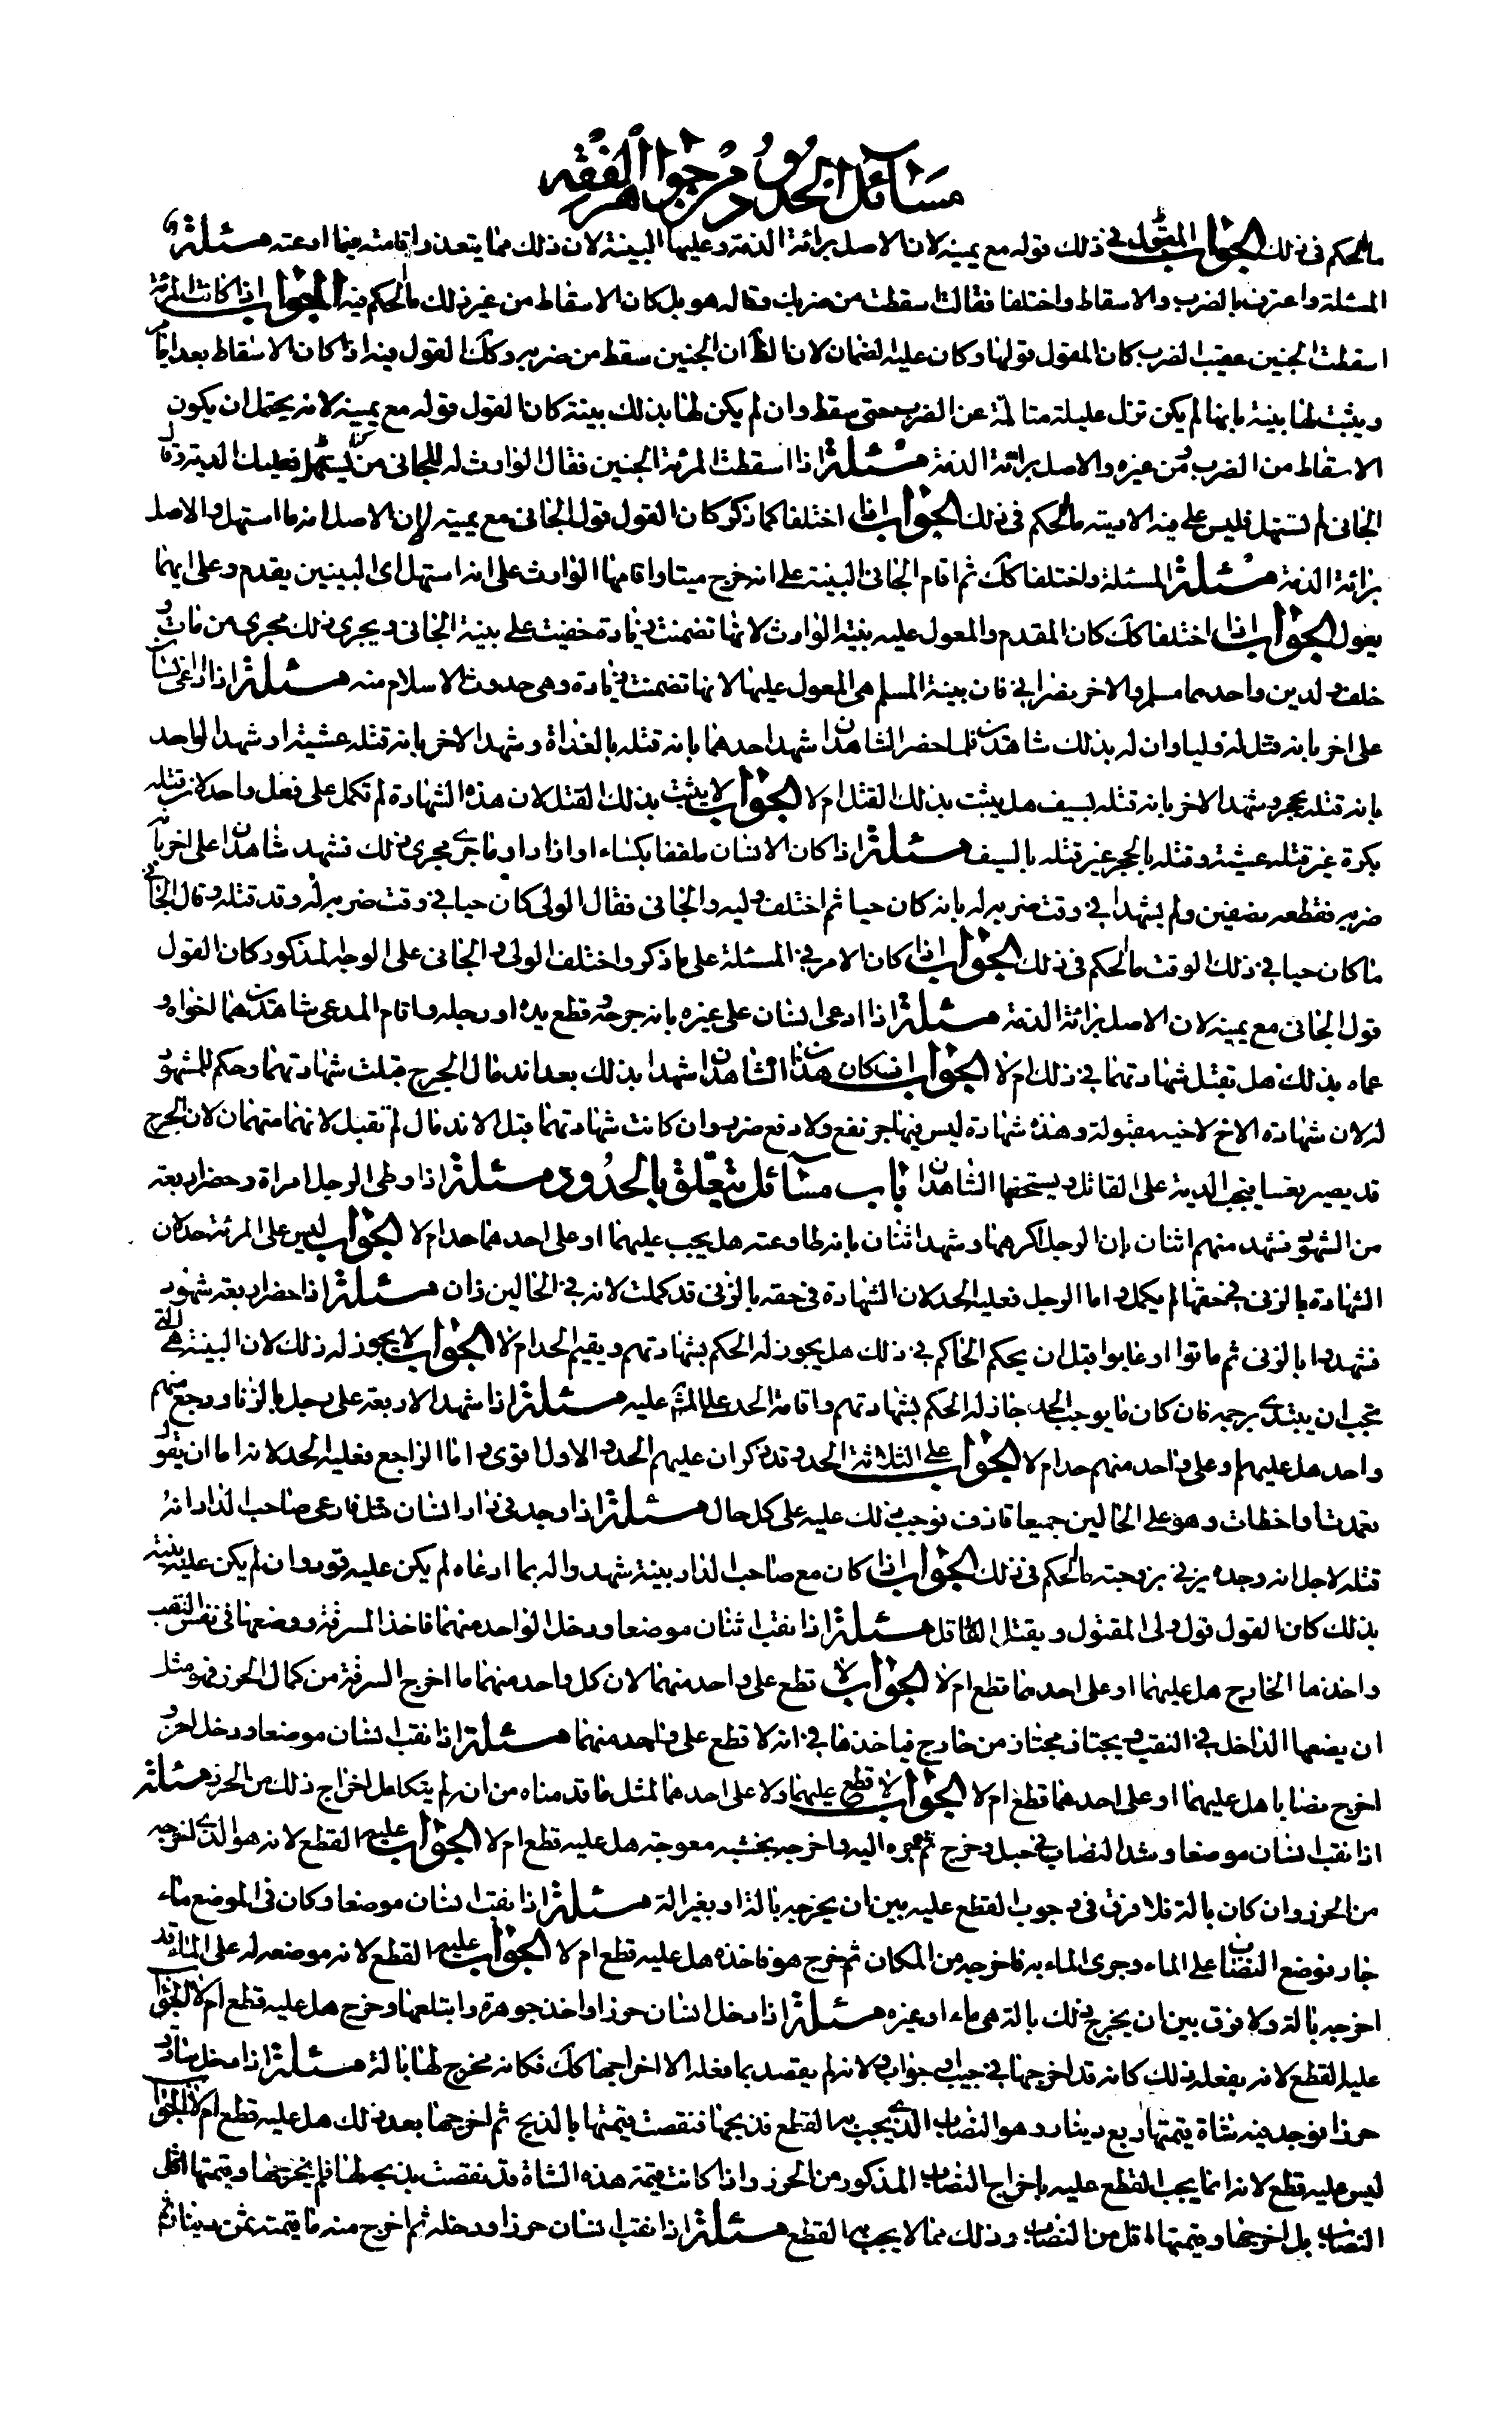 مسائل الحدود من جواهر الفقه
ما الحكم فى ذلك الجواب المقول فى ذلك قوله مع يمينه لان الاصل برائة الذمة وعليها البينة لان ذلك مما يتعذر اقامته فيما ادعته مسئلة
المسئلة واعترف بالضرب والاسقاط واختلفا فقالت اسقطت من ضربك وقال هو بل كان الاسقاط من غير ذلك ما الحكم فيه الجواب اذا كانت المرئة
اسقطت الجنين عقيب الضرب كان المقول قولها وكان عليه الضمان لان الظ ان الجنين سقط من ضربه وكك القول فيه اذا كان الاسقاط بعد ايام
ويثبت لها بينة بانها لم يكن تزل عليلة متالمة عن الضرب حتى سقط وان لم يكن لها بذلك بينة كان القول قوله مع يمينه لانه يحتمل ان يكون
الاسقاط من الضرب ومن غيره والاصل برائة الذمة مسئلة اذا اسقطت المرئة الجنين فقال الوارث له للجانى استهل فعليك الدية وقال
الجانى لم تستهل فليس على فيه الا ميته ما الحكم فى ذلك الجواب اذا اختلفا كما ذكر كان القول قول الجانى مع يمينه لان الاصل انه ما استهل والاصل
برائة الذمة مسئلة المسئلة واختلفا كك ثم اقام الجانى البينة على انه خرج ميتا واقامها الوارث على انه استهل اى البينتين يقدم وعلى ايهما
يعول الجواب اذا اختلفا كك كان المقدم والمعول عليه بينة الوارث لانها تضمنت زيادة خفيت على بينة الجانى ويجرى ذلك مجرى من مات و
خلف ولدين واحدهما مسلم والاخر نصرانى فان بينة المسلم هى المعول عليها لانها تضمنت زيادة وهى حدوث الاسلام منه مسئلة اذا ادعى انسان
على اخر بانه قتل له وليا وان له بذلك شاهدين فلما حضر الشاهدان شهد احدهما بانه قتله بالغداة وشهد الاخر بانه قتله عشية او شهد الواحد
بانه قتله بحجر وشهد الاخر بانه قتله بسيف هل يثبت بذلك القتل ام لا الجواب لا يثبت بذلك القتل لان هذه الشهادة لم تكمل على فعل واحد لان قتله
بكرة غير قتله عشية وقتله بالحجر غير قتله بالسيف مسئلة اذا كان الانسان ملففا بكساء او ازار او ما جرى مجرى ذلك فشهد شاهدان على اخر بانه
ضربه فقطعه نصفين ولم يشهدا فى وقت ضربه له بانه كان حيا ثم اختلف وليه والجانى فقال الولى كان حيا فى وقت ضربه له وقد قتله وقال الجانى
ما كان حيا فى ذلك الوقت ما الحكم فى ذلك الجواب اذا كان الامر فى المسئلة على ما ذكر واختلف الولى والجانى على الوجه المذكور كان القول
قول الجانى مع يمينه لان الاصل برائة الذمة مسئلة اذا ادعى انسان على غيره بانه جرحه وقطع يده او رجله واقام المدعى شاهدين هما اخواه و
عماه بذلك هل تقبل شهادتهما فى ذلك ام لا الجواب ان كان هذان الشاهدان شهدا بذلك بعد اندمال الجرح قبلت شهادتهما وحكم للمشهود
له لان شهادة الاخ لاخيه مقبولة وهذه شهادة ليس فيها جر نفع ولا دفع ضرر وان كانت شهادتهما قبل الاندمال لم تقبل لانهما متهمان لان الجرح
قد يصير نفسا فيجب الدية على القاتل ويستحقها الشاهدان باب مسائل تتعلق بالحدود مسئلة اذا وطى الرجل امراة وحضر اربعة
من الشهود فشهد منهم اثنان بان الرجل اكرهها وشهد اثنان بانه طاوعته هل يجب عليهما او على احدهما حد ام لا الجواب ليس على المرئة حد لان
الشهادة بالزنى فى حقها لم يكمل واما الرجل فعليه الحد لان الشهادة فى حقه بالزنى قد كملت لانه فى الحالين زان مسئلة اذا حضر اربعة شهود
فشهدوا بالزنى ثم ماتوا او غابوا قبل ان يحكم الحاكم فى ذلك هل يجوز له الحكم بشهادتهم ويقيم الحد ام لا الجواب لا يجوز له ذلك لان البينة هى التى
تجب ان يبتدى برجمه فان كان ما يوجب الحد جاز له الحكم بشهادتهم واقامة الحد على المش عليه مسئلة اذا شهد الاربعة على رجل بالزنا ورجع منهم
واحد هل عليهم او على واحد منهم حد ام لا الجواب على الثلاثة الحد وقد ذكر ان عليهم الحد والاول اقوى واما الراجع فعليه الحد لانه اما ان يقول
تعمدت او اخطات وهو على الحالين جميعا قاذف فوجب ذلك عليه على كل حال مسئلة اذا وجد فى دار انسان قتل فادعى صاحب الدار انه
قتله لاجل انه وجده يزنى بزوجته ما الحكم فى ذلك الجواب اذا كان مع صاحب الدار بينة شهدوا له بما ادعاه لم يكن عليه قود وان لم يكن عليه بينة
بذلك كان القول قول ولى المقتول ويقتل القاتل مسئلة اذا نقب اثنان موضعا ودخل الواحد منهما فاخذ السرقة ووضعها فى نفس النقب
واخذها الخارج هل عليهما او على احدهما قطع ام لا الجواب لا قطع على واحد منهما لان كل واحد منهما ما اخرج السرقة من كمال الحرز فهو مثل
ان يضعها الداخل فى النقب ويجتاز مجتاز من خارج فياخذها فى انه لا قطع على واحد منهما مسئلة اذا نقب انسان موضعا ودخل اخر و
اخرج نصابا هل عليهما او على احدهما قطع ام لا الجواب لا قطع عليهما ولا على احدهما لمثل ما قدمناه من انه لم يتكامل اخراج ذلك من الحرز مسئلة
اذا نقب انسان موضعا وشد النصاب فى حبل وخرج ثم جره اليه واخرجه بخشبه معوجة هل عليه قطع ام لا الجواب عليه القطع لانه هو الذى اخرجه
من الحرز وان كان بالة فلا فرق فى وجوب القطع عليه بين ان يخرجه بالة او بغير الة مسئلة اذا نقب انسان موضعا وكان فى الموضع ماء
جار فوضع النصاب على الماء وجرى الماء به فاخرجه من المكان ثم خرج هو فاخذه هل عليه قطع ام لا الجواب عليه القطع لانه موضعه له على الماء قد
اخرجه بالة ولا فرق بين ان يخرج ذلك بالة هى ماء او غيره مسئلة اذا دخل انسان حرزا واخذ جوهرة وابتلعها وخرج هل عليه قطع ام لا الجواب
عليه القطع لانه بفعله ذلك كانه قد اخرجها فى جيب او جراب ولانه لم يقصد بما فعله الا اخراجها كك فكانه مخرج لها بالة مسئلة اذا دخل سارق
حرزا فوجد فيه شاة قيمتها ربع دينار وهو النصاب الذى يجب به القطع فذبحها فنقصت قيمتها بالذبح ثم اخرجها بعد ذلك هل عليه قطع ام لا الجواب
ليس عليه قطع لانه انما يجب القطع عليه باخراج النصاب المذكور من الحرز واذا كانت قيمة هذه الشاة قد نقصت بذبحه لها فلم يخرجها وقيمتها اقل
النصاب بل اخرجها وقيمتها اقل من النصاب وذلك مما لا يجب به القطع مسئلة اذا نقب انسان حرزا ودخله ثم اخرج منه ما قيمته ثمن دينار ثم